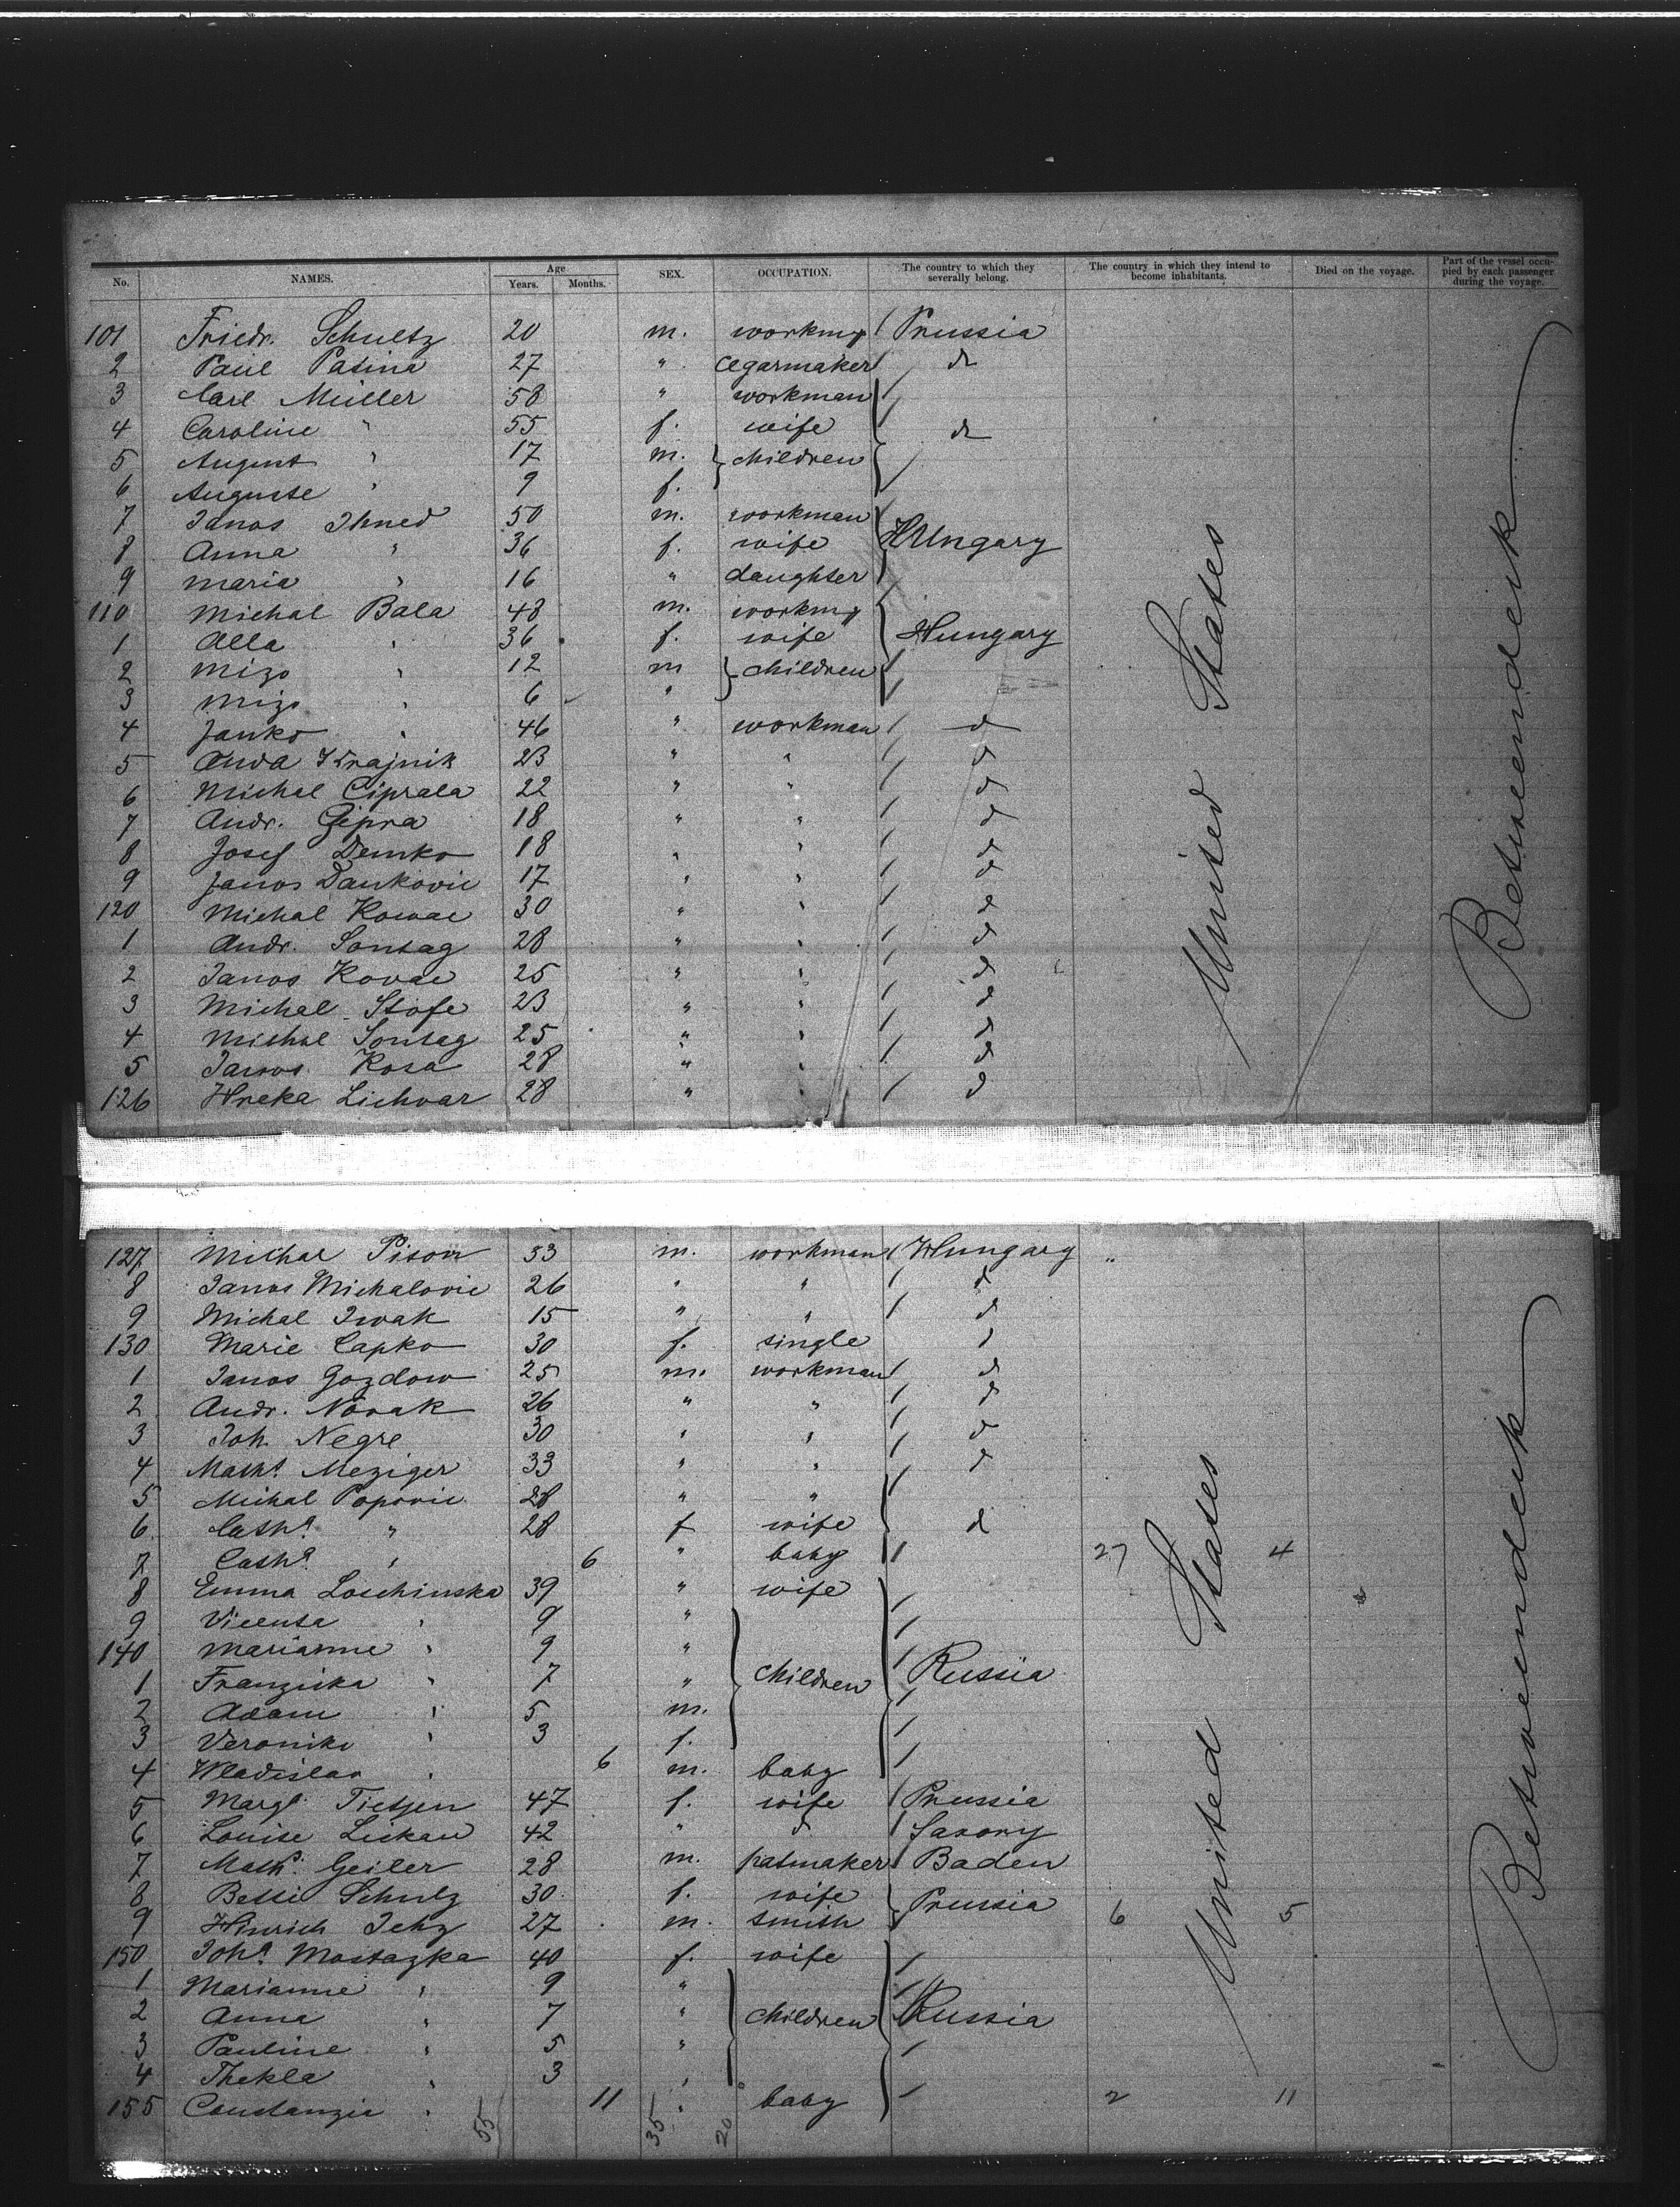 No. NAMES. Age Years. Months. SEX. OCCUPATION. The country to which they severally belong. The country in which they intend to become inhabitants. Died on the voyage. Part of the vessel occupied by each passenger during the voyage.
101 Friedr. Schultz 20 m. workmn Prussia
2 Paul Patina 27 " Cegarmaker do
3 Carl Müller 58 " workman
4 Caroline " 55 f. wife do
5 August " 17 m. children
6 Auguste " 9 f.
7 Janos Ihned 50 m. workman
8 Anna " 36 f. wife Hungary
9 Maria " 16 " daughter
110 Michal Bala 48 m. workmn
1 Alla " 36 f. wife Hungary
2 Mizo " 12 m children
3 Mizo " 6 "
4 Janko " 46 " workman d
5 Anda Krajnik 23 " " d
6 Michal Ciprala 22 " " d
7 Andr. Gipra 18 " " d
8 Josef Demko 18 " " d
9 Janos Dankovic 17 " " d
120 Michal Kowac 30 " " d
1 Andr. Sontag 28 " " d
2 Janos Kovac 25 " " d
3 Michal Stofe 23 " " d
4 Michal Sontag 25 " " d
5 Janos Kosa 28 " " d
126 Hreka Lichvar 28 " " d
United States
Betweendeck
127 Michal Pison 33 m. workman Hungary "
8 Janos Michalovic 26 " " d
9 Michal Iwak 15 " " d
130 Marie Capko 30 f. single
1 Janos Gozdow 25 m. workman d
2 Andr. Novak 26 " " d
3 Joh. Negre 30 " " d
4 Maths. Meziger 33 " " d
5 Michal Popovic 28 " "
6 Catha. " 28 f wife d
7 Catha. " 6 " baby 27 4
8 Emma Loschinska 39 " wife
9 Vicenta " 9 "
140 Marianne " 9 "
1 Franziska " 7 " children Russia
2 Adam " 5 m.
3 Veronika " 3 f.
4 Wladislav " 6 m. baby
5 Margt. Tietjen 47 f. wife Prussia
6 Louise Lickau 42 " d Saxony
7 Maths. Geiler 28 m. hatmaker Baden
8 Betti Schulz 30 f. wife Prussia
9 Hinrich Jehz 27 m. smith 6 5
150 Joha. Mostazka 40 f. wife
1 Marianne " 9 "
2 Anna " 7 " children Russia
3 Pauline " 5 "
4 Thekla " 3 "
155 Constanzia " 11 " baby 2 11
55 35 20
United States
Betweendeck